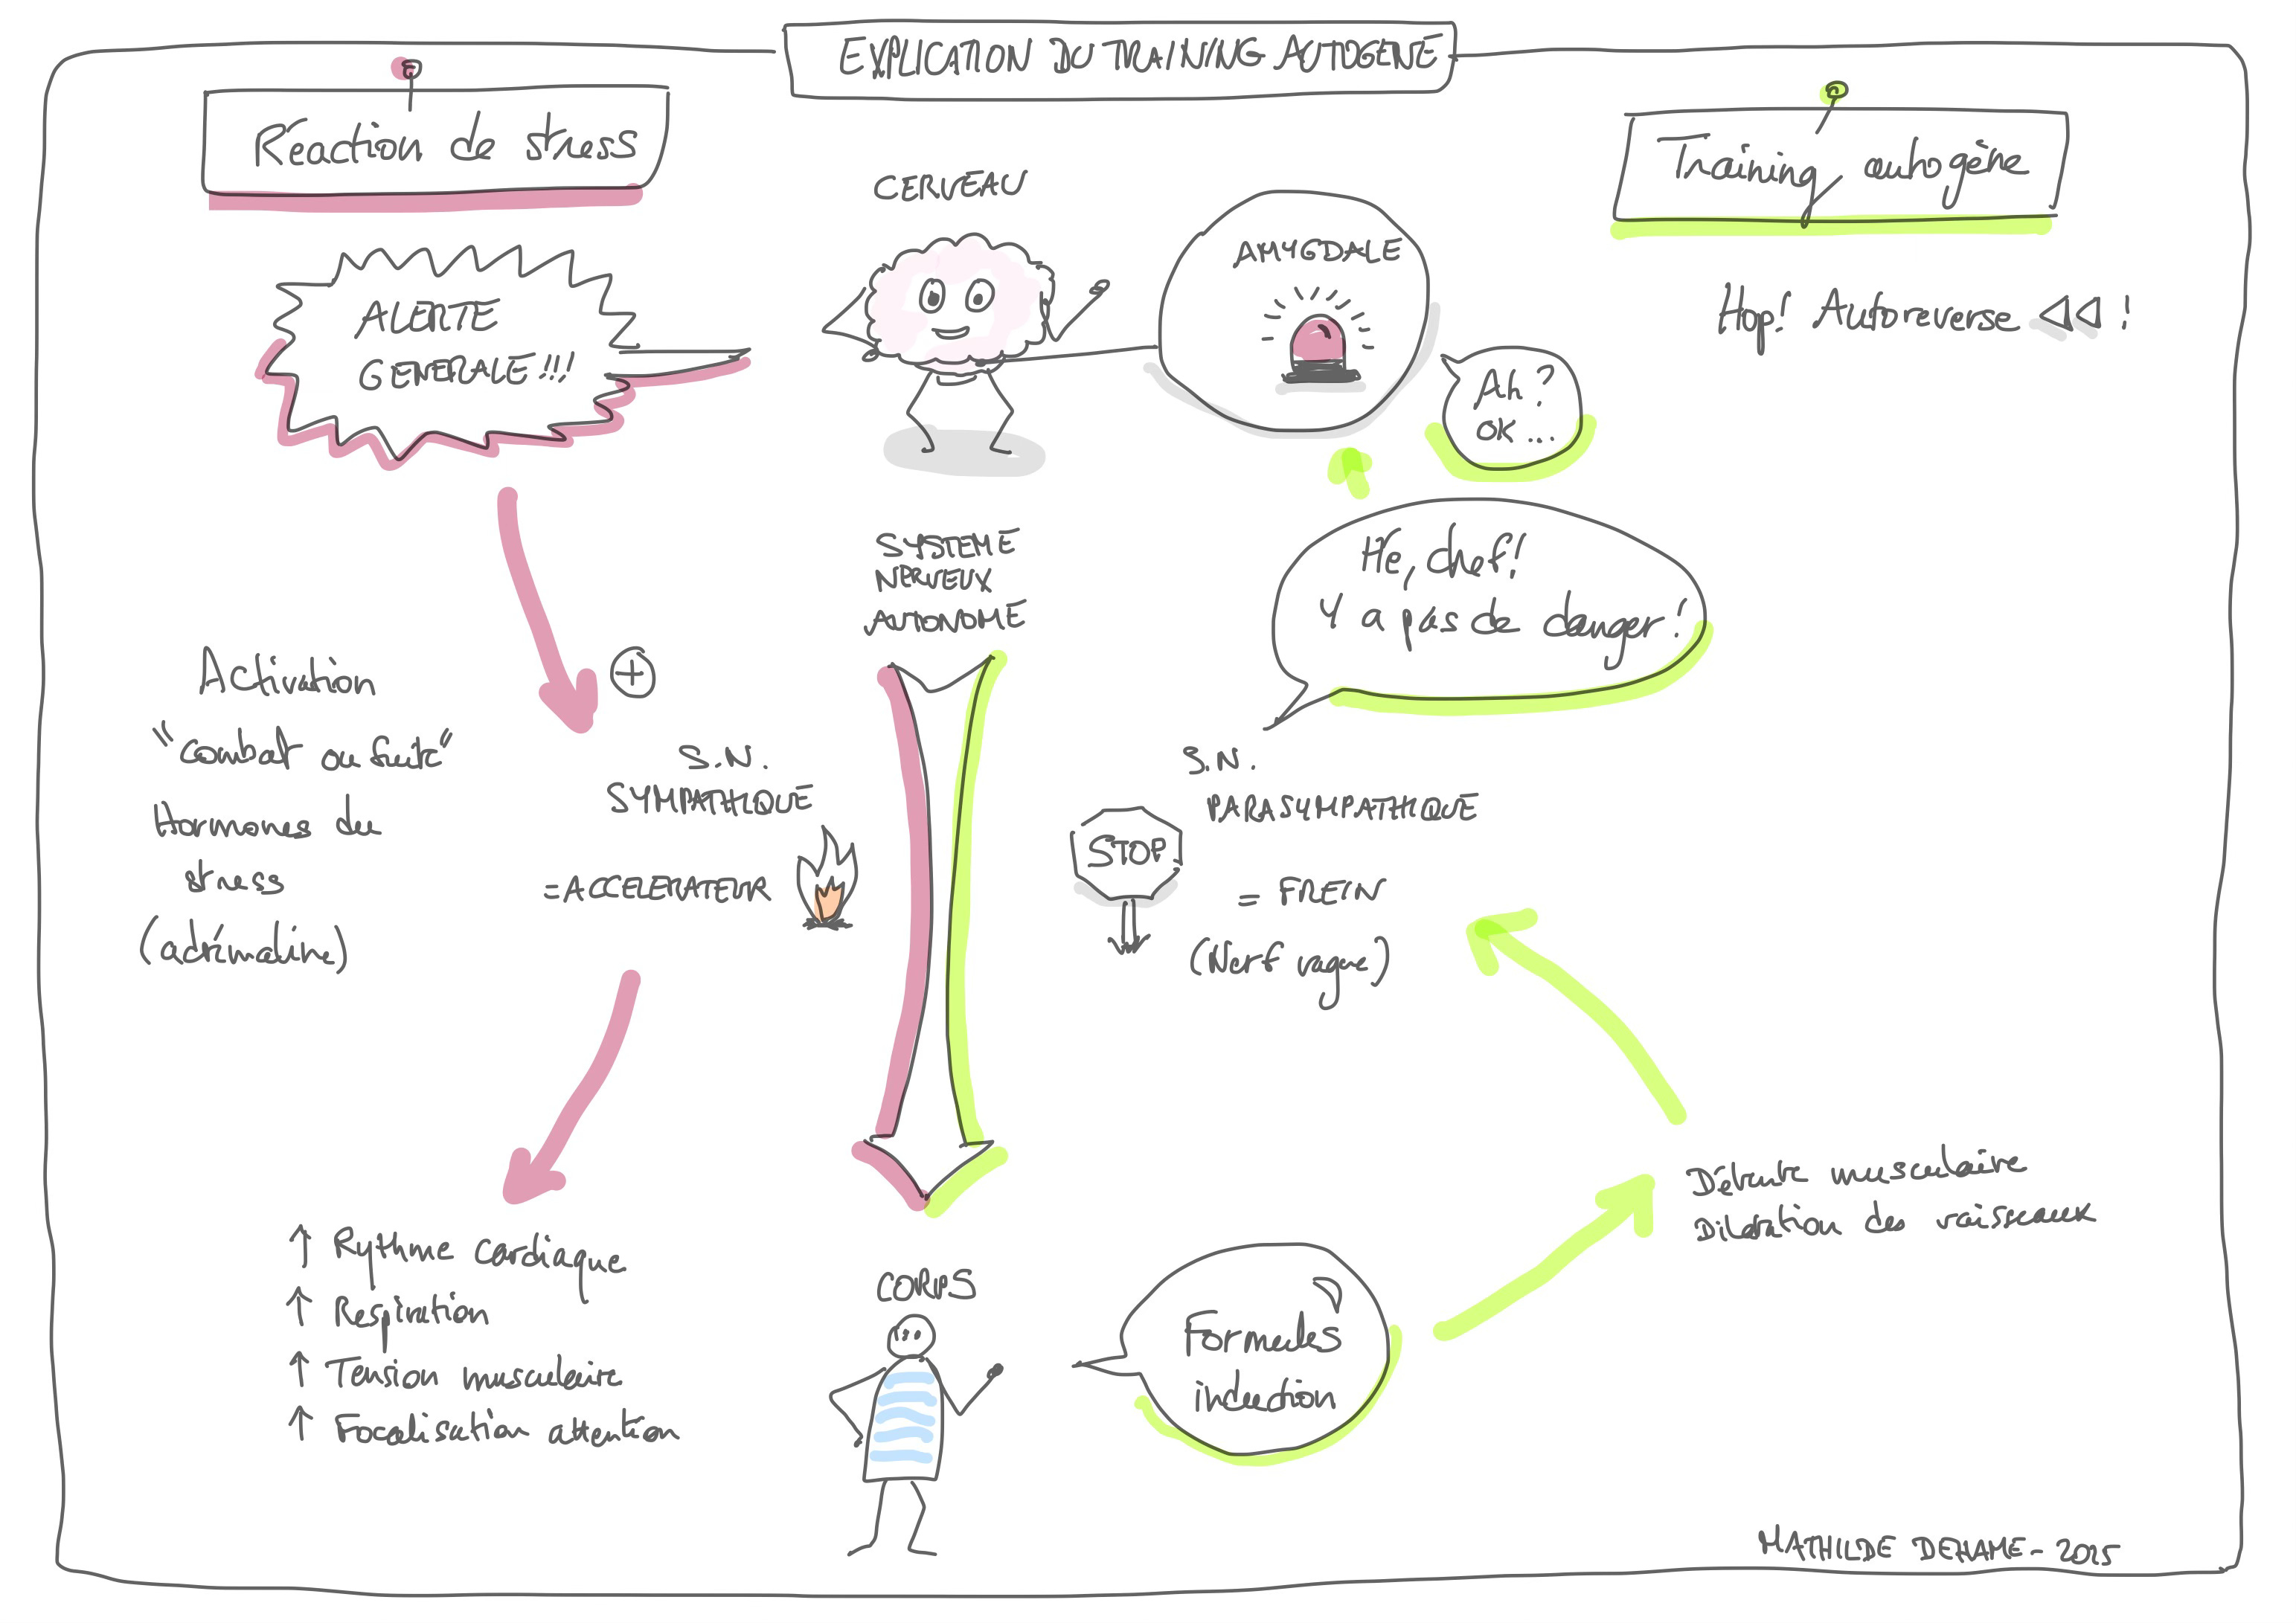 EXPLICATION DU TRAINING AUTOGENE
Réaction de stress
ALERTE
GENERALE!!!
CERVEAU
AMYGDALE
Training autogène
Hop! Autoreverse ◁◁!
Ah?
OK...
Hé, chef!
Y a pas de danger!
SYSTEME
NERVEUX
AUTONOME
Activation
"Combat ou fuite"
Hormones du
stress
(adrénaline)
+
S.N.
SYMPATHIQUE
=ACCELERATEUR
STOP
S.N.
PARASYMPATHIQUE
= FREIN
(Nerf vague)
↑ Rythme cardiaque
↑ Respiration
↑ Tension musculaire
↑ Focalisation attention
CORPS
Formules
induction
Détente musculaire
Dilatation des vaisseaux
MATHILDE DEHAME - 2025